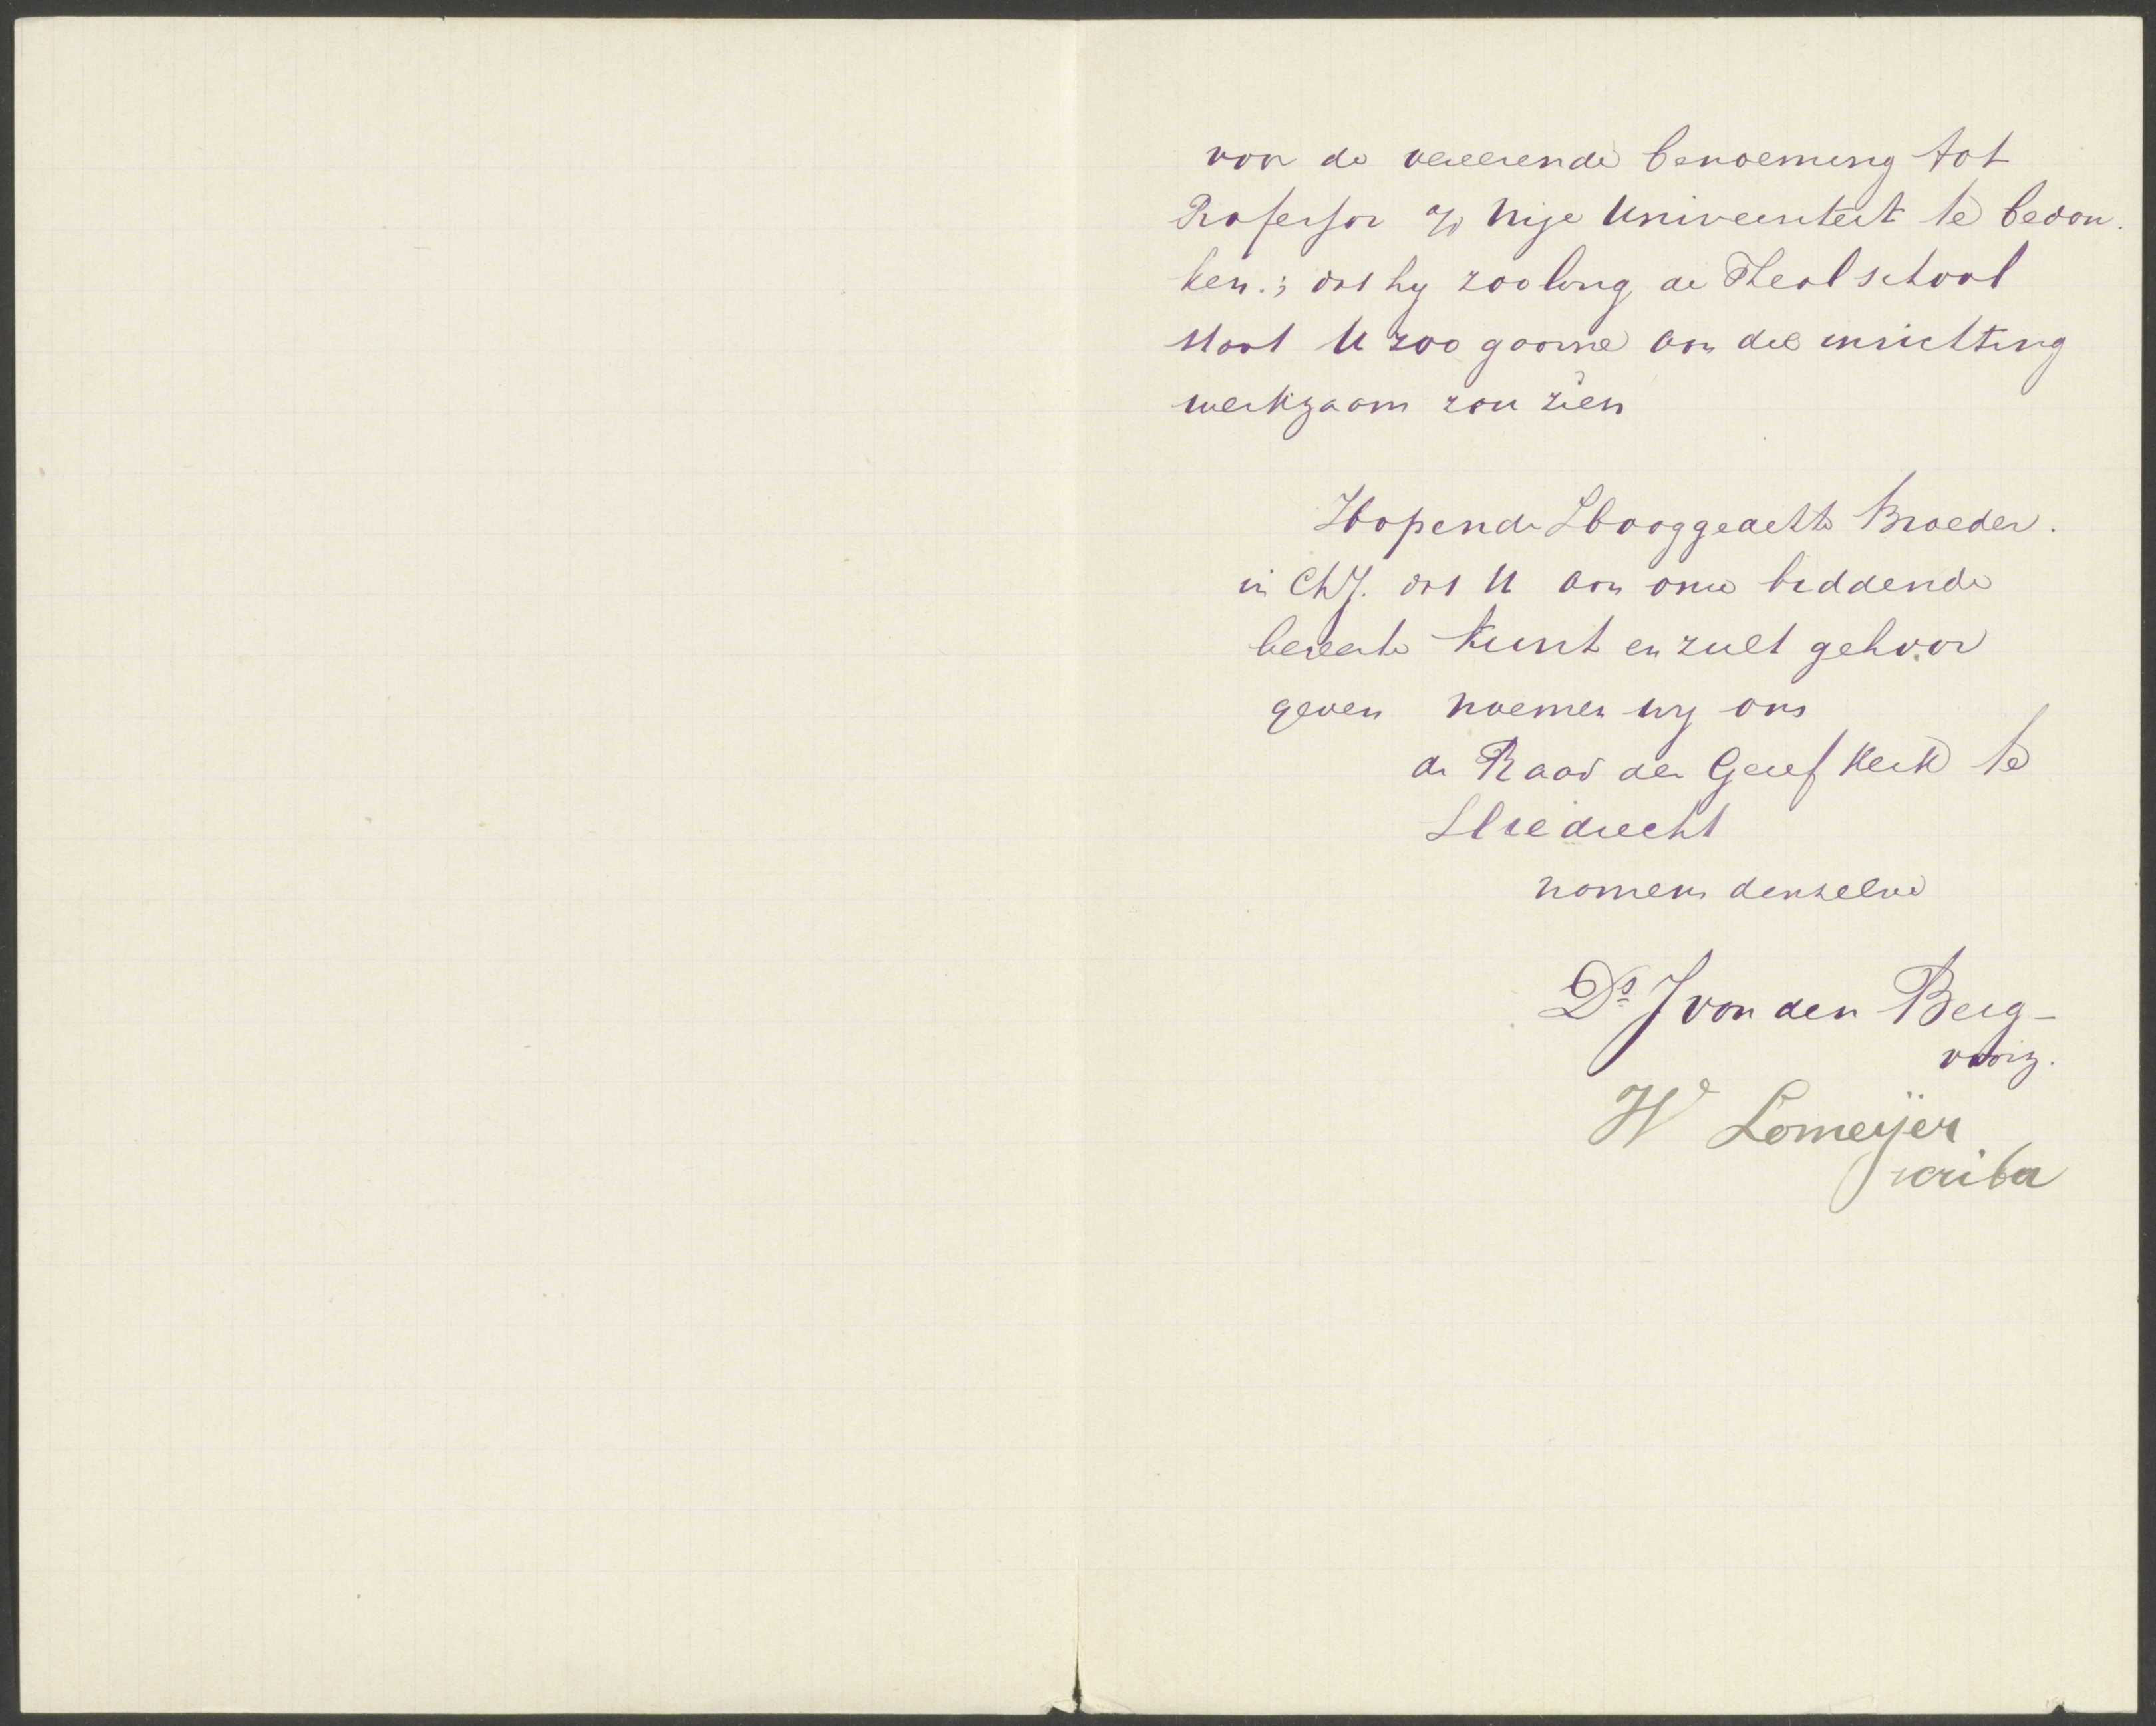 voor de vereerende benoeming tot
Professor a/d Vrije Universiteit te bedan-
ken.; dat hij zoolang de Theol school
staat U zoo gaarne aan die inrichting
werkzaam zou zien
Hopende Hooggeachte Broeder.
in Ch J. dat U aan onze biddende
beê kunt en zult gehoor
geven noemen wij ons
de Raad der Geref Kerk te
Sliedrecht
namens denzelve
Ds J van den Berg -
voorz.
W Lomeijer
scriba